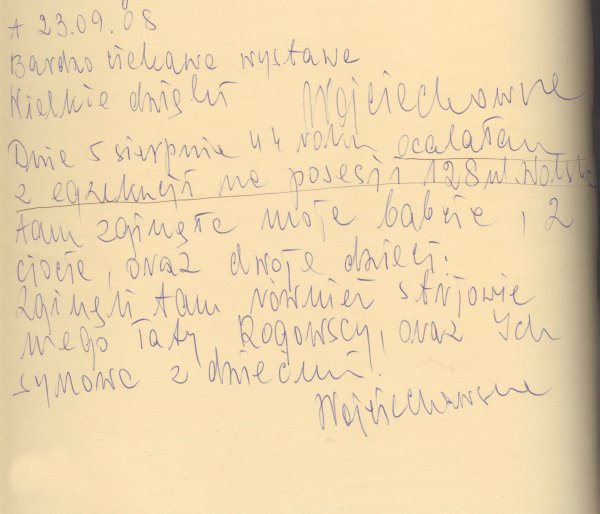 23.09.08
Bardzo ciekawa wystawa
Wielkie dzięki Wojciechowska
Dnia 5 sierpnia 44 roku ocalałam
z egzekucji na posesji 128 ul. Wolska
tam zginęła moja babcia, 2
ciocie, oraz dwoje dzieci.
Zginęli tam również stryjowie
mego Taty Rogowscy, oraz Ich
synowa z dziećmi.
Wojciechowska